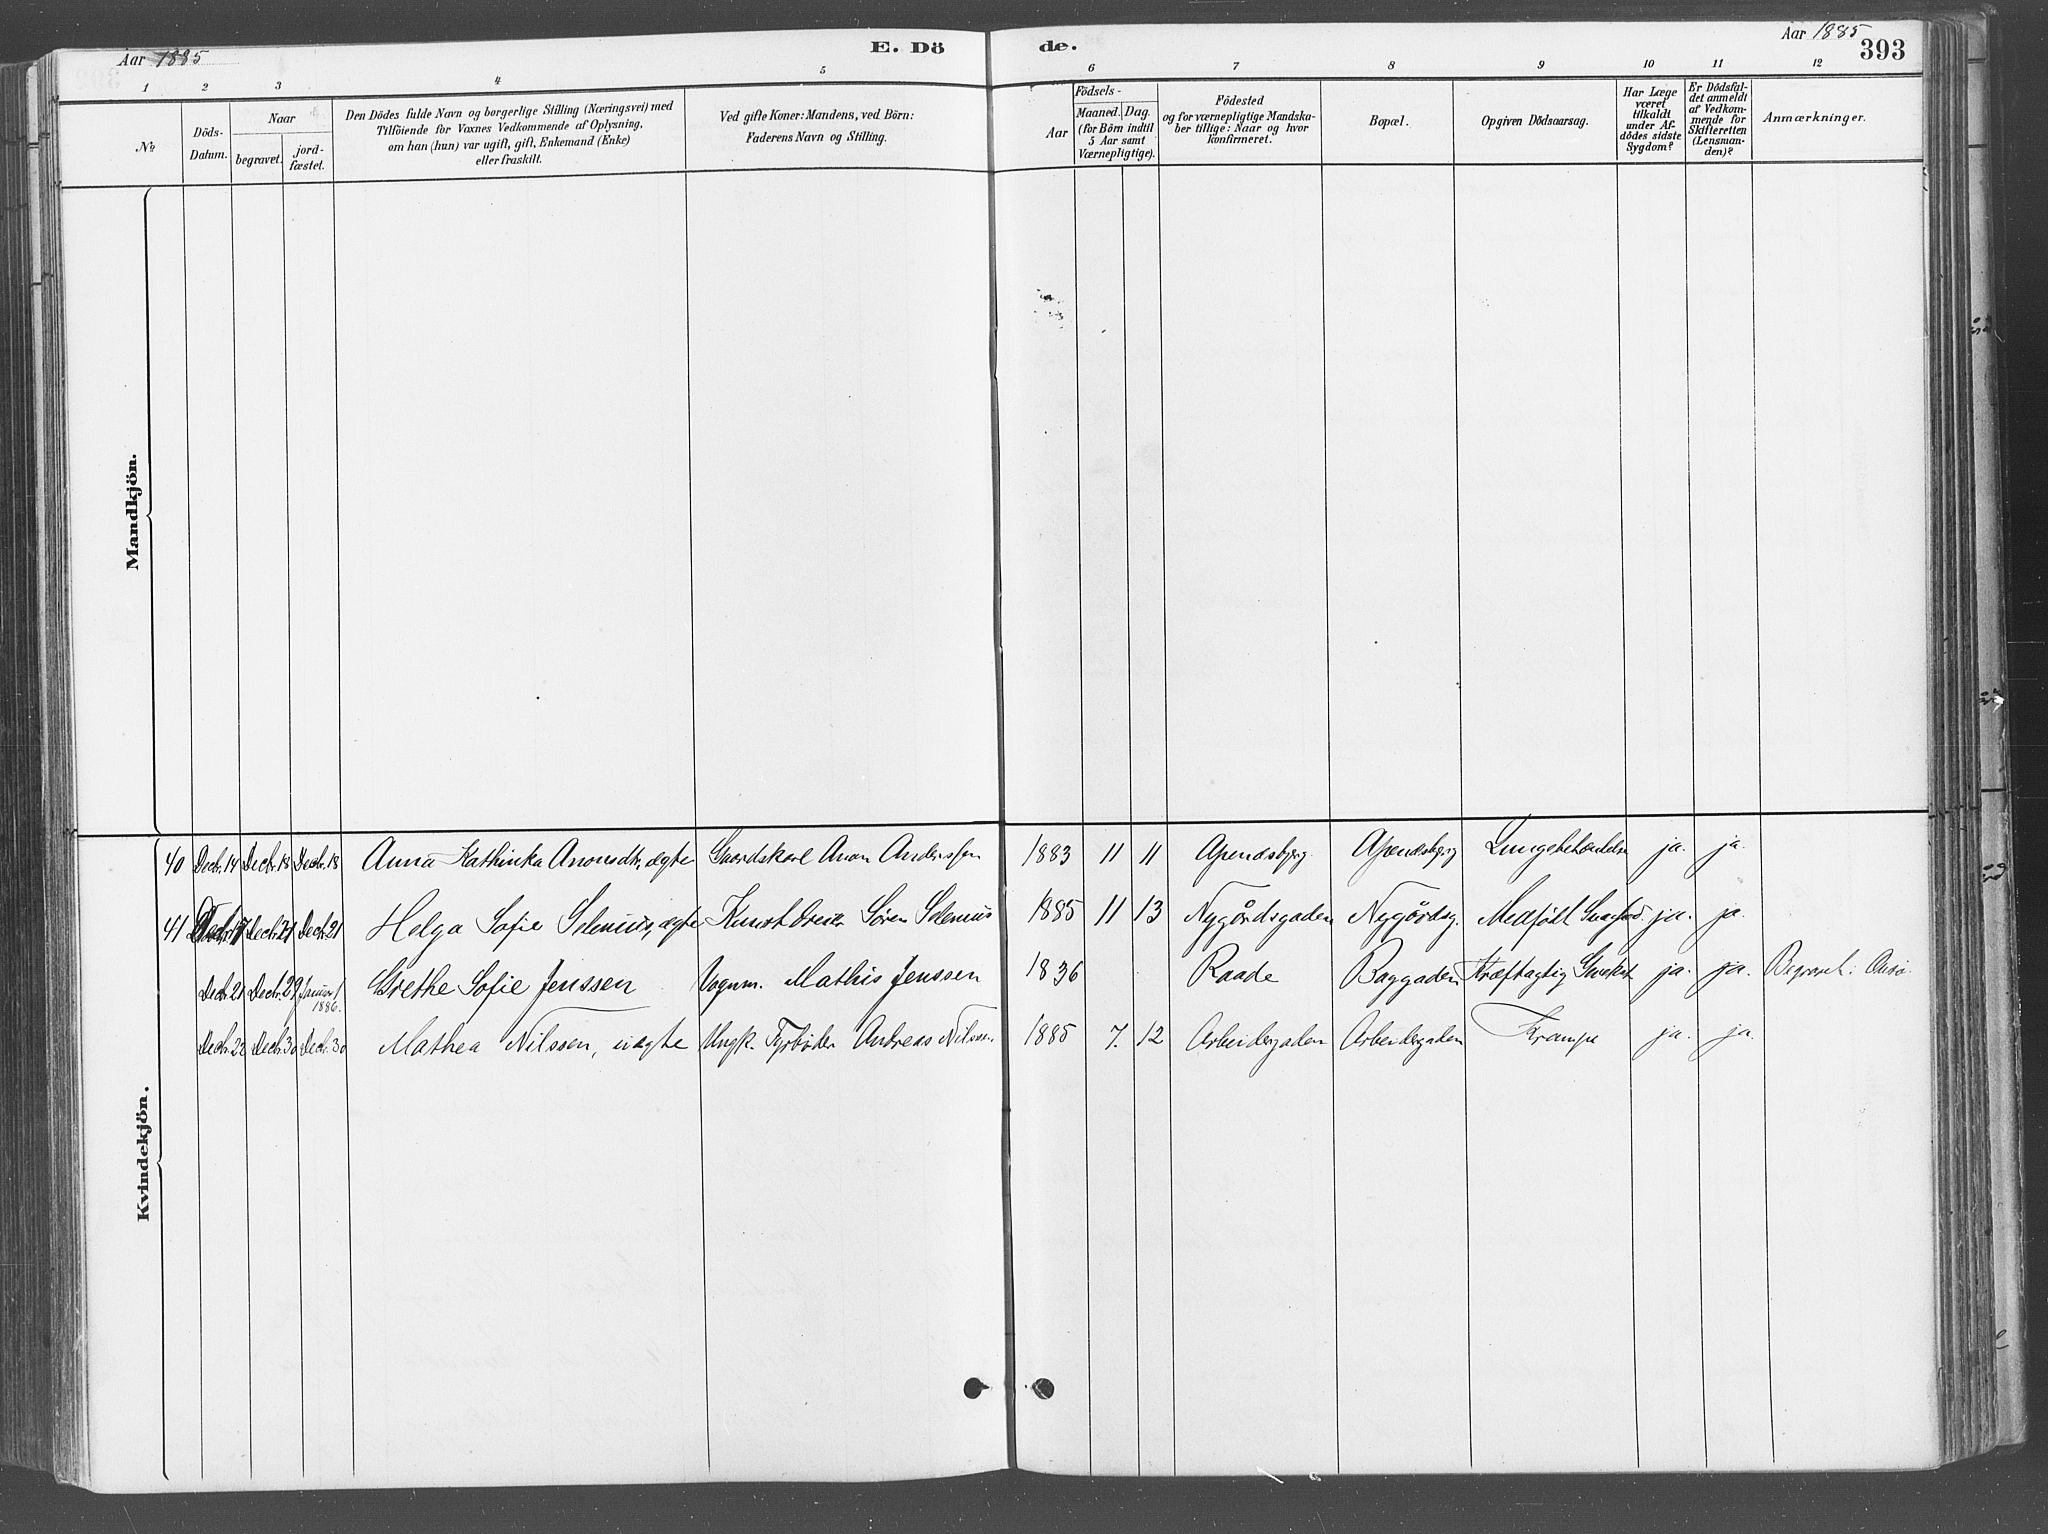 Aar 1885 E. Dö de. Aar 1885 393
1 2 3 4 5 6 7 8 9 10 11 12
No
Döds-Datum.
Naar
begravet.
jord-fæstet.
Den Dödes fulde Navn og borgerlige Stilling (Næringsvei) med
Tilföiende for Voxnes Vedkommende af Oplysning,
om han (hun) var ugift, gift, Enkemand (Enke)
eller fraskilt.
Ved gifte Koner: Mandens, ved Börn:
Faderens Navn og Stilling.
Födsels-
Aar
Maaned. Dag.
(for Börn indtil
5 Aar samt
Værnepligtige).
Födested
og for værnepligtige Mandska-
ber tillige: Naar og hvor
konfirmeret.
Bopæl.
Opgiven Dödsaarsag.
Har Læge
været
tilkaldt
under Af-
dödes sidste
Sygdom?
Er Dödsfal-
det anmeldt
af Vedkom-
mende for
Skifteretten
(Lensman-
den)?
Anmærkninger.
Mandkjön.
Kvindekjön.
40 Decbr. 14 Decbr. 18 Decbr. 18 Anna Kathinka ægte Anon Anderssen 1883 11 11 Apenæsbjerg Apenæsbjerg ja. ja.
41 Decbr. 17 Decbr. 21 Decbr. 21 Helga Sofie Selenius, ægte Søren Selenius 1885 11 13 Nygårdsgaden Nygårdsg. Medfödt ja. ja.
Decbr. 21 Decbr. 29 Januar 1 1886. Grethe Sofie Jenssen Vognm. Mathis Jenssen 1836 Raade Baggaden Kræftagtig ja. ja. Begravet i Onsö
Decbr. 22 Decbr. 30 Decbr. 30 Mathea Nilssen, uægte Ungk. Fyrbøder Andreas Nilssen. 1885 7. 12 Arbeidergaden Arbeidergaden Krampe ja. ja.